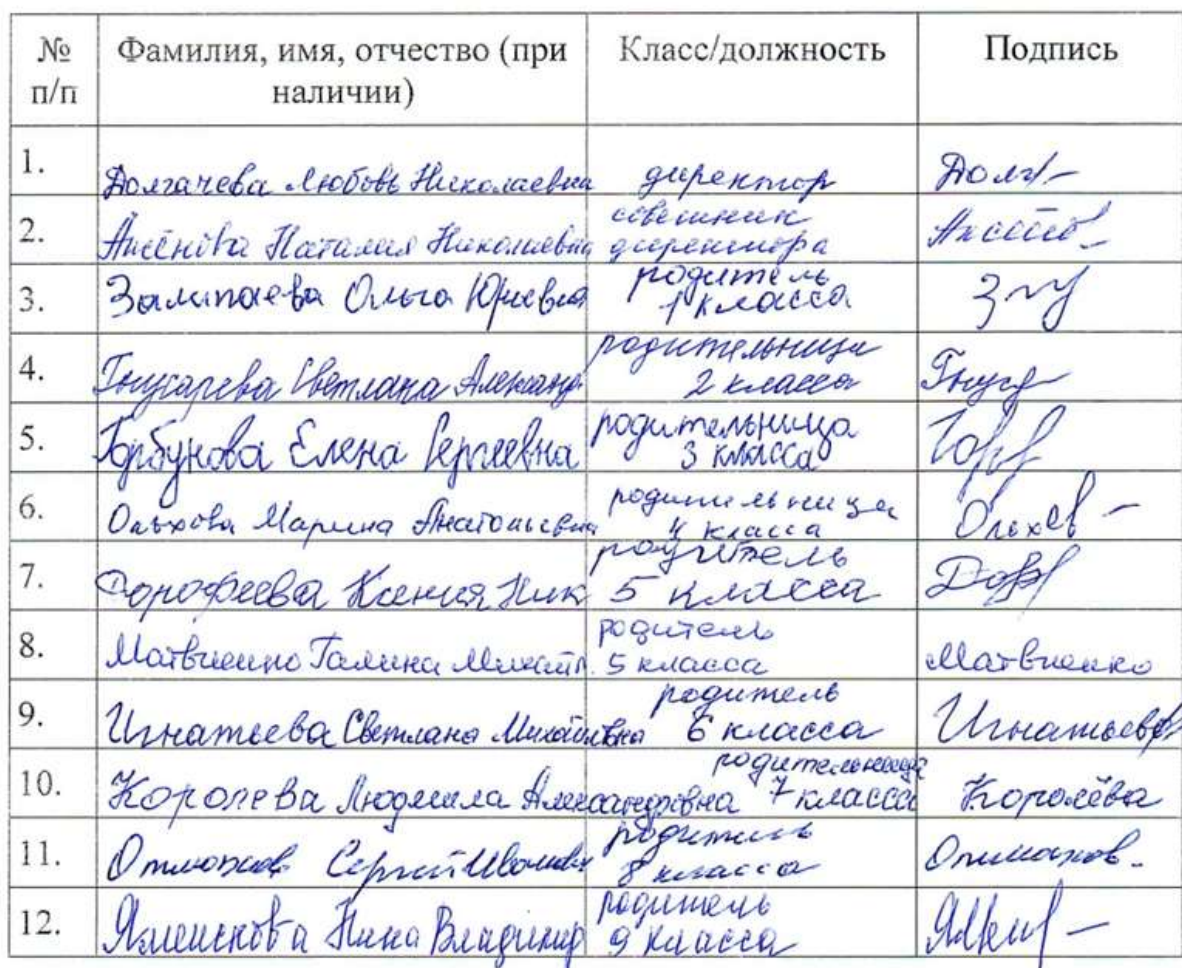 № Фамилия, имя, отчество (при Класс/должность Подпись
п/п наличии)
1. Долгачева Любовь Николаевна директор Долг
2. Аксёнова Наталия Николаевна советник
директора
3. Залипаева Ольга Юрьевна родитель
1 класса
4. Гнусарева Светлана Александ родительница
2 класса Гнуса
5. Горбунова Елена Сергеевна родительница
3 класса Горб
6. Ольхова Марина Анатольевна родительница
4 класса Ольхов
7. Дорофеева Ксения Ник родитель
5 класса Дор
8. Матвиенко Галина Михайл. родитель
5 класса Матвиенко
9. Игнатьева Светлана Михайловна родитель
6 класса Игнатьева
10. Королева Людмила Александровна родительница
7 класса Королёва
11. Сергей Иванович родитель
8 класса
12. Нина Владимир родитель
9 класса